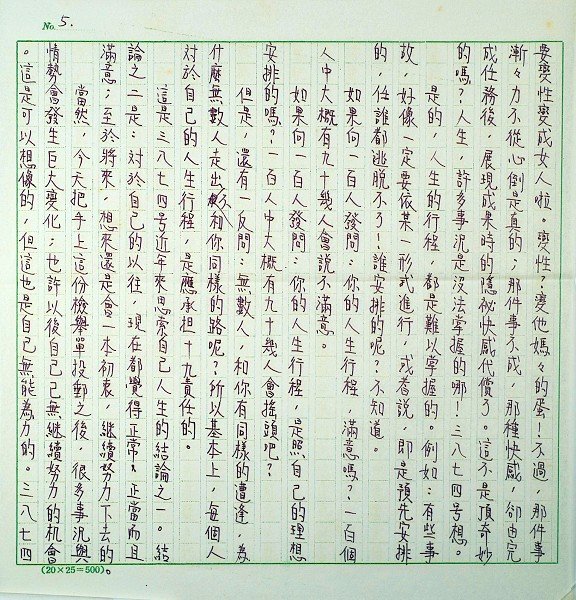 No. 5.
要變性變成女人啦。變性？變他媽々的蛋！不過，那件事
漸々力不從心倒是真的；那件事不成，那種快感，卻由完
成任務後，展現成果時的隱祕快感代償了。這不是頂奇妙
的嗎？人生，許多事況是沒法掌握的哪！三八七四號想。
是的，人生的行程，都是難以掌握的。例如：有些事
故，好像一定要依某一形式進行，或者說，即是預先安排
的，任誰都逃脫不了！誰安排的呢？不知道。
如果向一百人發問：你的人生行程，滿意嗎？一百個
人中大概有九十幾人會說不滿意。
如果向一百人發問：你的人生行程，是照自己的理想
安排的嗎？一百人中大概有九十幾人會搖頭吧？
但是，還有一反問：無數人，和你有同樣的遭逢，為
什麼無數人走出不和你同樣的路呢？所以基本上，每個人
對於自己的人生行程，是應承担十九責任的。
這是三八七四號近年來思索自己人生的結論之一。結
論之二是：對於自己的以往，現在都覺得正常、正當而且
滿意；至於將來，想來還是會一本初衷，繼續努力下去的
。
當然，今天把手上這份檢舉單投郵之後，很多事況與
情勢會發生巨大變化；也許以後自己已無繼續努力的機會
。這是可以想像的，但這也是自己無能為力的。三八七四
(20×25=500)